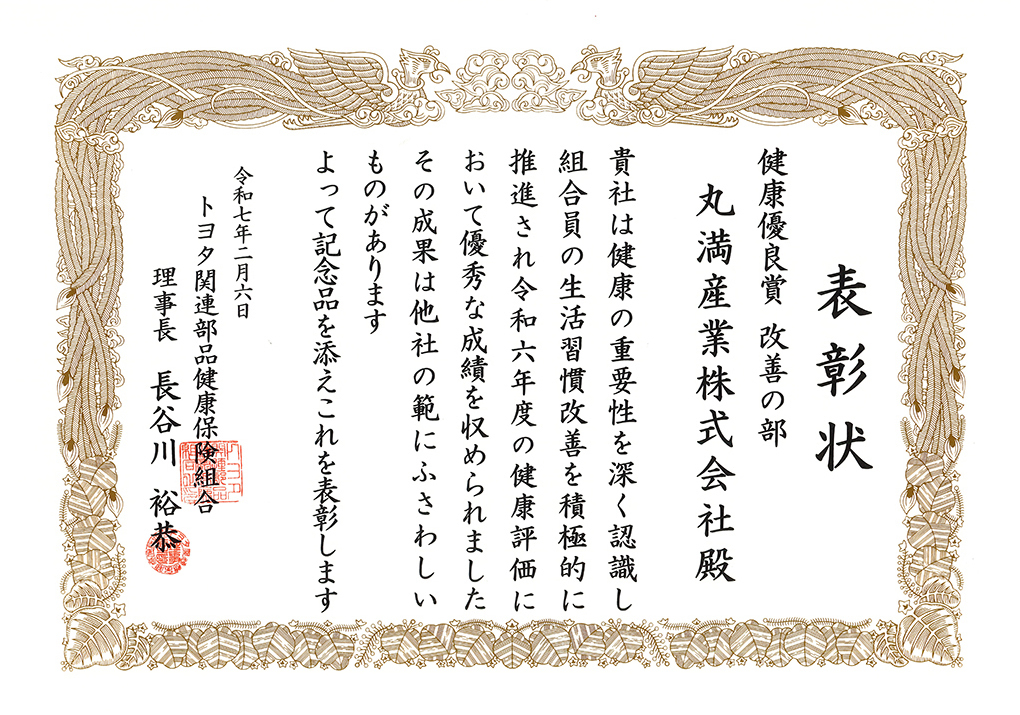 表彰状
健康優良賞 改善の部
丸満産業株式会社殿
貴社は健康の重要性を深く認識し
組合員の生活習慣改善を積極的に
推進され令和六年度の健康評価に
おいて優秀な成績を収められました
その成果は他社の範にふさわしい
ものがあります
よって記念品を添えこれを表彰します
令和七年二月六日
トヨタ関連部品健康保険組合
理事長 長谷川 裕恭